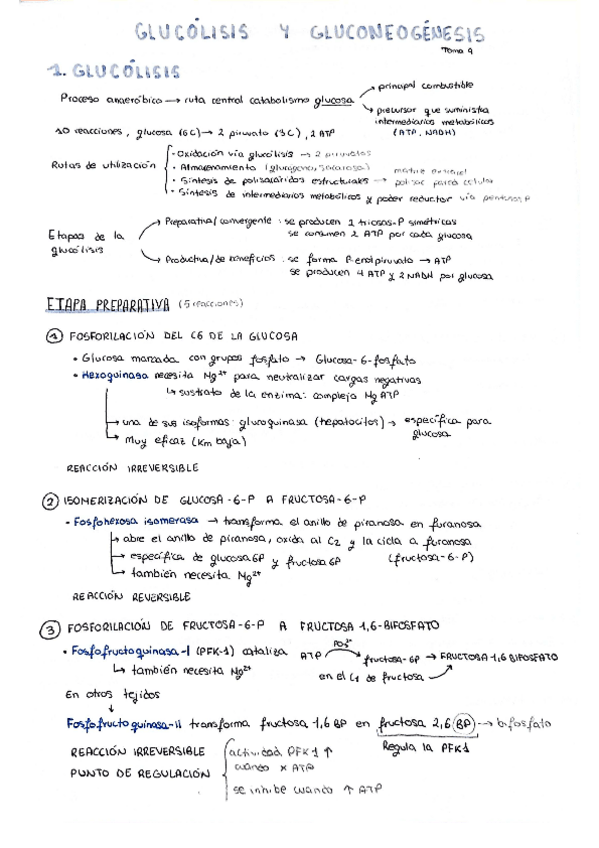 GLUCÓLISIS Y GLUCONEOGÉNESIS
Tema 9
1. GLUCÓLISIS
Proceso anaeróbico → ruta central catabolismo glucosa
→ principal combustible
→ precursor que suministra
intermediarios metabólicos
(ATP, NADH)
10 reacciones, glucosa (6C) → 2 piruvato (3C), 2 ATP
Rutas de utilización
· Oxidación vía glucólisis → 2 piruvatos
· Almacenamiento (glucógeno, sacarosa)
· Síntesis de polisacáridos estructurales → polisac pared celular
· Síntesis de intermediarios metabólicos y poder reductor vía pentosas P
Etapas de la
glucólisis
→ Preparativa/convergente: se producen 2 triosas-P simétricas
se consumen 2 ATP por cada glucosa
→ Productiva/de beneficios: se forma P-enolpiruvato → ATP
se producen 4 ATP y 2 NADH por glucosa
ETAPA PREPARATIVA (5 reacciones)
1 FOSFORILACIÓN DEL C6 DE LA GLUCOSA
• Glucosa marcada con grupos fosfato → Glucosa-6-fosfato
• Hexoquinasa necesita Mg2+ para neutralizar cargas negativas
↳ sustrato de la enzima: complejo MgATP
→ una de sus isoformas: glucoquinasa (hepatocitos) → específica para
glucosa
→ Muy eficaz (Km baja)
REACCIÓN IRREVERSIBLE
2 ISOMERIZACIÓN DE GLUCOSA-6-P A FRUCTOSA-6-P
• Fosfohexosa isomerasa → transforma el anillo de piranosa en furanosa
→ abre el anillo de piranosa, oxida al C2 y la cicla a furanosa
(fructosa-6-P)
→ específica de glucosa 6P y fructosa 6P
→ también necesita Mg2+
REACCIÓN REVERSIBLE
3 FOSFORILACIÓN DE FRUCTOSA-6-P A FRUCTOSA 1,6-BIFOSFATO
• Fosfofructoquinasa-I (PFK-1) cataliza ATP fructosa-6P → FRUCTOSA 1,6 BIFOSFATO
↳ también necesita Mg2+
en el C1 de fructosa
En otros tejidos
↓
Fosfofructoquinasa-II transforma fructosa 1,6 BP en fructosa 2,6 BP → bifosfato
Regula la PFK1
REACCIÓN IRREVERSIBLE
PUNTO DE REGULACIÓN
actividad PFK1 ↑
cuando × ATP
se inhibe cuando ↑ ATP